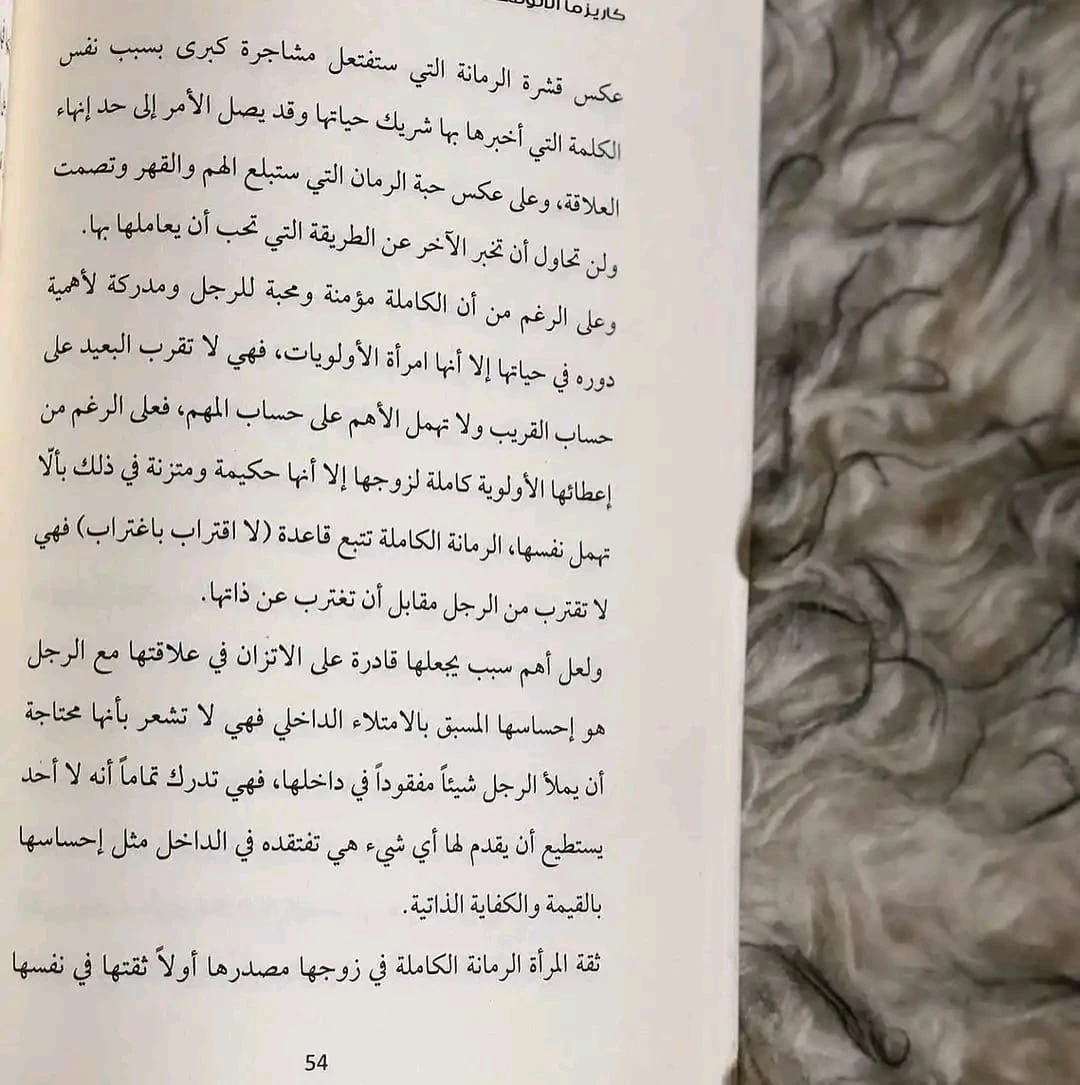 كاريزما
عكس قشرة الرمانة التي ستفتعل مشاجرة كبرى بسبب نفس
الكلمة التي أخبرها بها شريك حياتها وقد يصل الأمر إلى حد إنهاء
العلاقة، وعلى عكس حبة الرمان التي ستبلع الهم والقهر وتصمت
ولن تحاول أن تخبر الآخر عن الطريقة التي تحب أن يعاملها بها.
وعلى الرغم من أن الكاملة مؤمنة ومحبة للرجل ومدركة لأهمية
دوره في حياتها إلا أنها امرأة الأولويات، فهي لا تقرب البعيد على
حساب القريب ولا تهمل الأهم على حساب المهم، فعلى الرغم من
إعطائها الأولوية كاملة لزوجها إلا أنها حكيمة ومتزنة في ذلك بألّا
تهمل نفسها، الرمانة الكاملة تتبع قاعدة (لا اقتراب باغتراب) فهي
لا تقترب من الرجل مقابل أن تغترب عن ذاتها.
ولعل أهم سبب يجعلها قادرة على الاتزان في علاقتها مع الرجل
هو إحساسها المسبق بالامتلاء الداخلي فهي لا تشعر بأنها محتاجة
أن يملأ الرجل شيئاً مفقوداً في داخلها، فهي تدرك تماماً أنه لا أحد
يستطيع أن يقدم لها أي شيء هي تفتقده في الداخل مثل إحساسها
بالقيمة والكفاية الذاتية.
ثقة المرأة الرمانة الكاملة في زوجها مصدرها أولاً ثقتها في نفسها
54